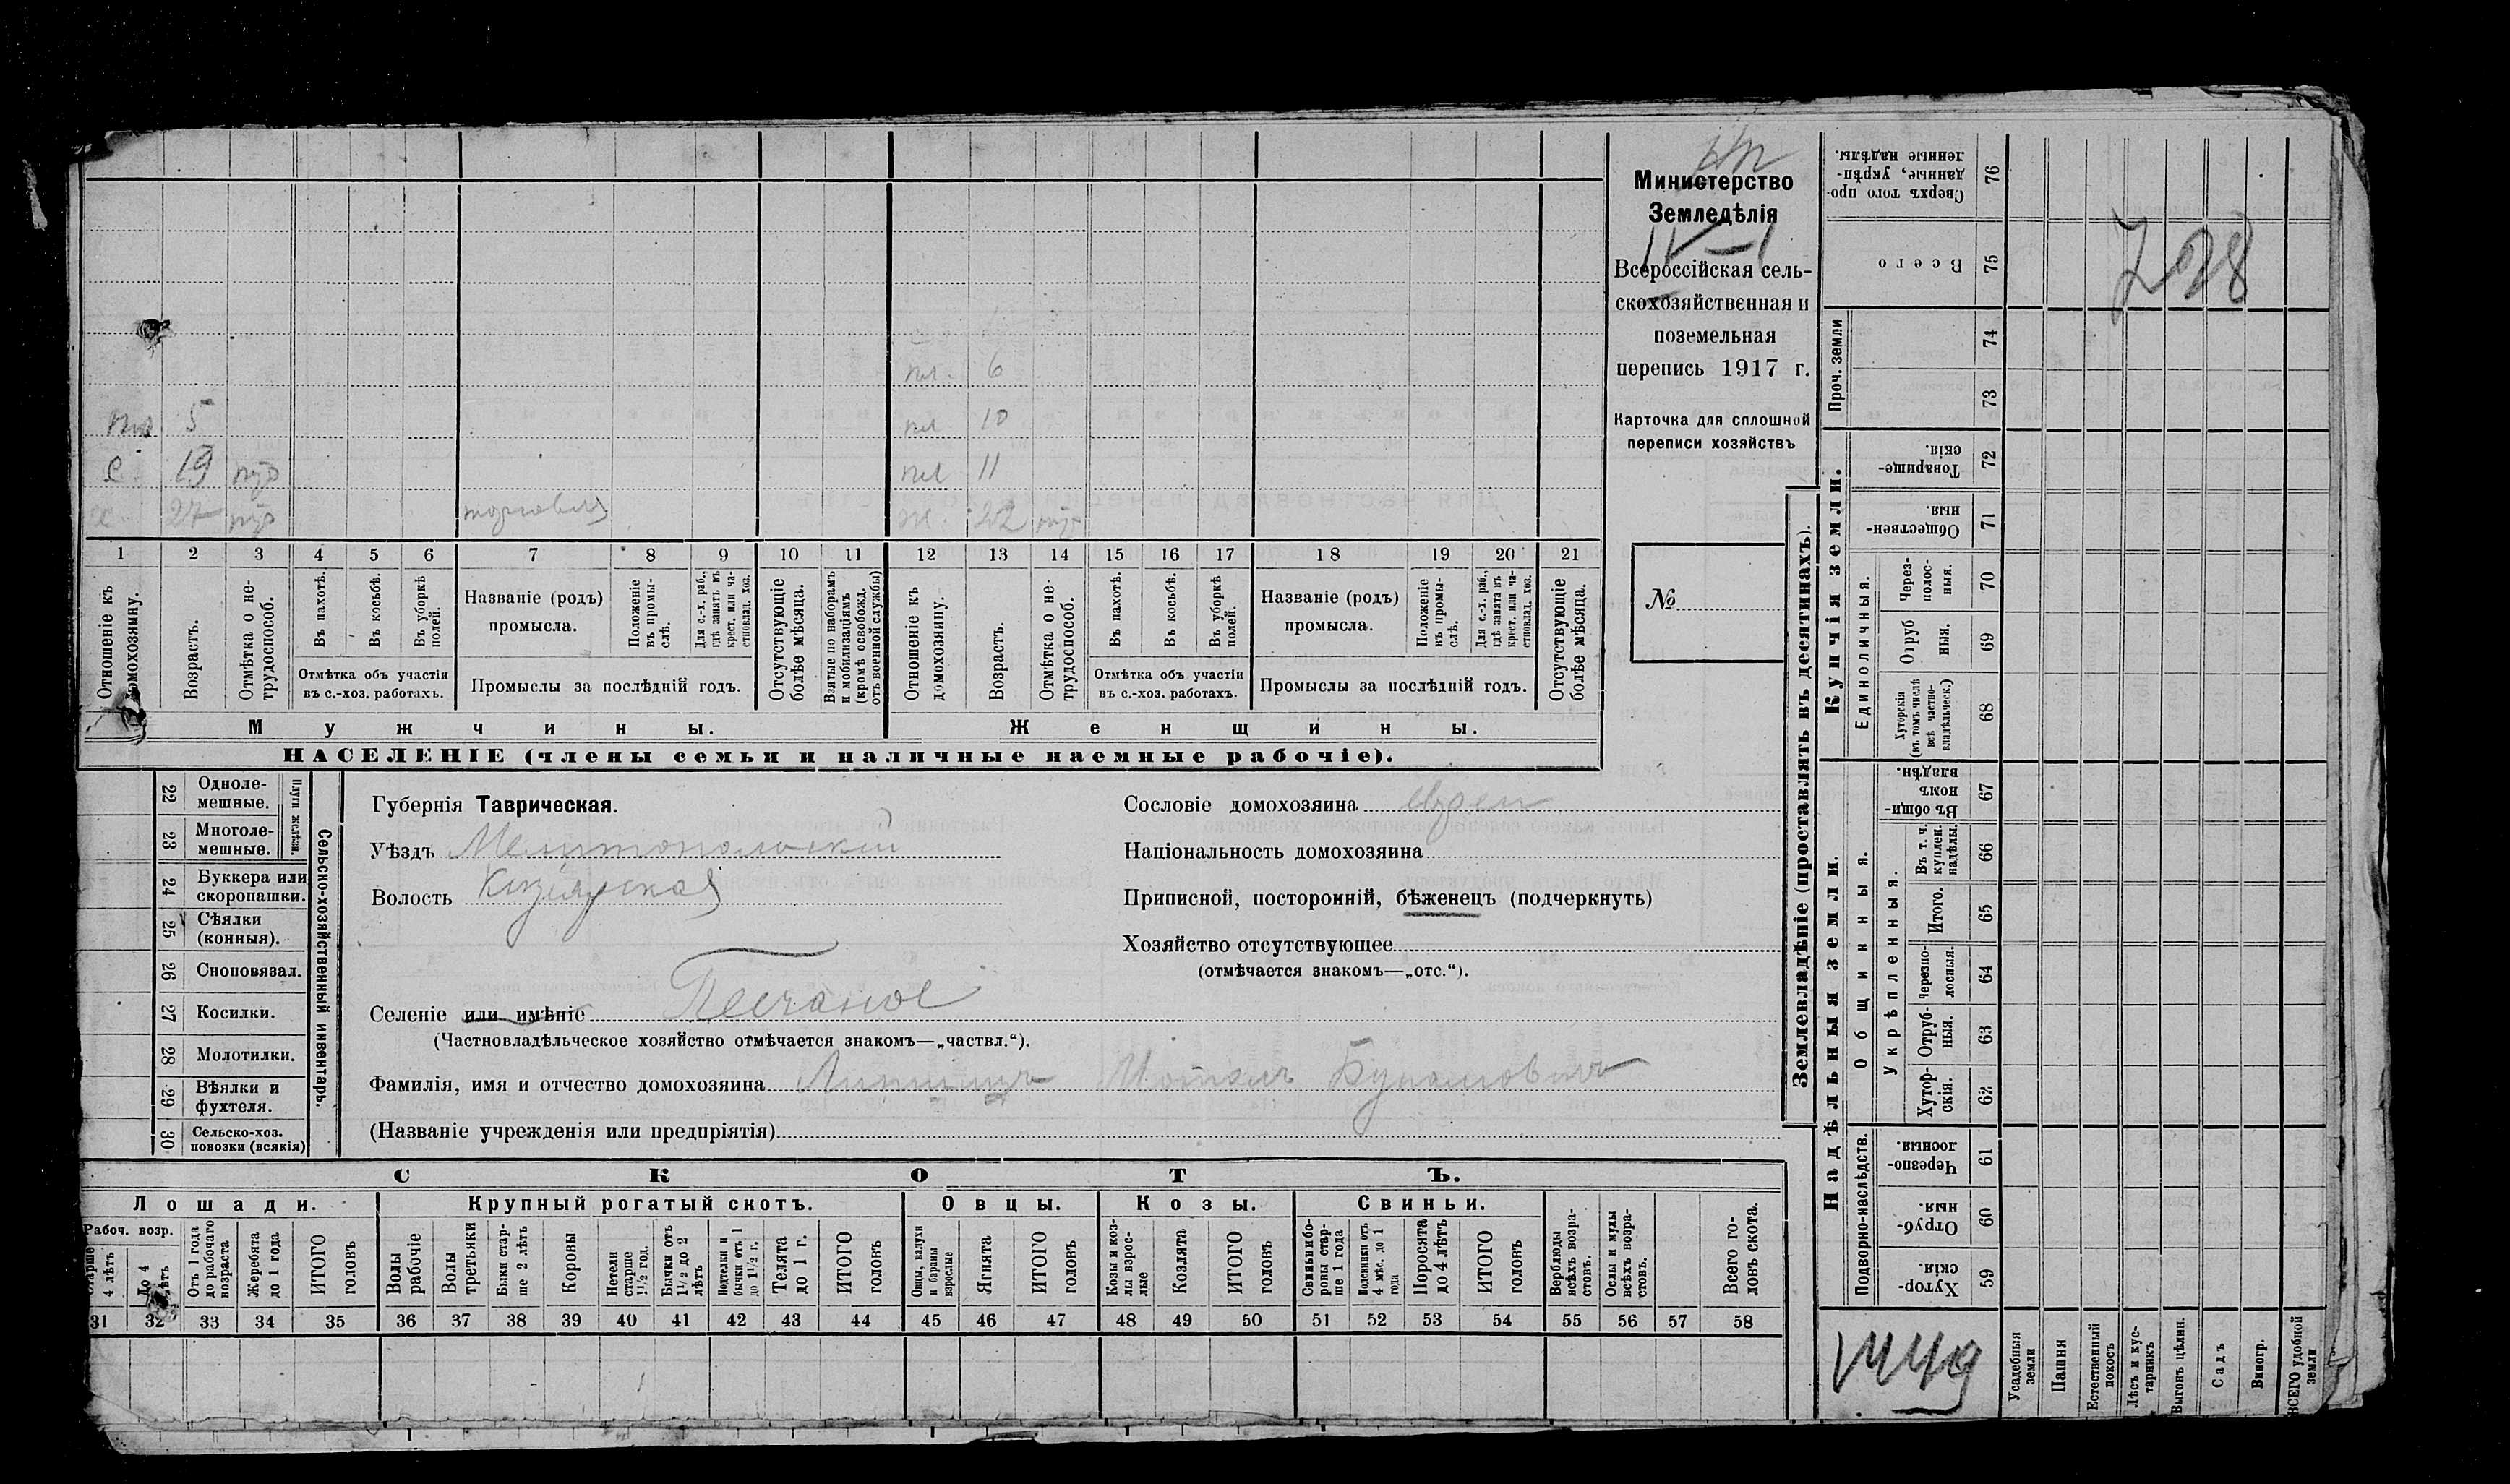 Министерство
Земледѣлія
IV–1
Всероссійская сель-
скохозяйственная и
поземельная
перепись 1917 г.
Карточка для сплошной
переписи хозяйствъ
№
пл. 6
пл 10
пл 11
5
19
27 торговля 22
1 2 3 4 5 6 7 8 9 10 11 12 13 14 15 16 17 18 19 20 21
Отношеніе къ домохозяину.
Возрастъ.
Отмѣтка о не-
трудоспособ.
Въ пахотѣ.
Въ косьбѣ.
Въ уборкѣ полей.
Отмѣтка объ участіи
въ с.-хоз. работахъ.
Названіе (родъ)
промысла.
Положеніе въ промы-
слѣ.
Для с.-х. раб., гдѣ занятъ въ крест. или ча-
стновлад. хоз.
Промыслы за послѣдній годъ.
Отсутствующіе болѣе мѣсяца.
Взятые по наборамъ и мобилизаціямъ (кромѣ освобожд. отъ военной службы)
Отношеніе къ домохозяину.
Возрастъ.
Отмѣтка о не-
трудоспособ.
Въ пахотѣ.
Въ косьбѣ.
Въ уборкѣ полей.
Отмѣтка объ участіи
въ с.-хоз. работахъ.
Названіе (родъ)
промысла.
Положеніе въ промы-
слѣ.
Для с.-х. раб., гдѣ занята въ крест. или ча-
стновлад. хоз.
Промыслы за послѣдній годъ.
Отсутствующіе болѣе мѣсяца.
Мужчины. Женщины.
НАСЕЛЕНІЕ (члены семьи и наличные наемные рабочіе).
22 Одноле-
мешные.
23 Многоле-
мешные.
Плуги желѣзн.
24 Буккера или
скоропашки.
25 Сѣялки
(конныя).
26 Сноповязал.
27 Косилки.
28 Молотилки.
29 Вѣялки и
фухтеля.
30 Сельско-хоз.
повозки (всякія)
Сельско-хозяйственный инвентарь.
Губернія Таврическая.
Уѣздъ Мелитопольскій
Волость
Селеніе или имѣніе Песчаное
(Частновладѣльческое хозяйство отмѣчается знакомъ—„частвл.“).
Фамилія, имя и отчество домохозяина
(Названіе учрежденія или предпріятія)
Сословіе домохозяина
Національность домохозяина
Приписной, посторонній, бѣженецъ (подчеркнуть)
Хозяйство отсутствующее
(отмѣчается знакомъ—„отс.“).
СКОТЪ.
Лошади. Крупный рогатый скотъ. Овцы. Козы. Свиньи.
Рабоч. возр.
Старше 4 лѣтъ
До 4 лѣтъ
Отъ 1 года до рабочаго возраста
Жеребята до 1 года
ИТОГО головъ
Волы рабочіе
Волы третьяки
Быки стар-
ше 2 лѣтъ
Коровы
Нетели старше 1½ год.
Бычки отъ 1½ до 2 лѣтъ
Подтелки и бычки отъ 1 до 1½ г.
Телята до 1 г.
ИТОГО головъ
Овцы, валухи и бараны взрослые
Ягнята
ИТОГО головъ
Козы и коз-
лы взрос-
лые
Козлята
ИТОГО головъ
Свиньи и бо-
ровы стар-
ше 1 года
Подсвинки отъ 4 мѣс. до 1 года
Поросята до 4 лѣтъ
ИТОГО головъ
Верблюды всѣхъ возра-
стовъ.
Ослы и мулы всѣхъ возра-
стовъ.
Всего го-
ловъ скота.
31 32 33 34 35 36 37 38 39 40 41 42 43 44 45 46 47 48 49 50 51 52 53 54 55 56 57 58
Землевладѣніе (проставлять въ десятинахъ).
Сверхъ того про-
данные, укрѣп-
ленные надѣлы. 76
Всего 75
Проч. земли 74 73
Купчія земли.
Товарище-
скія. 72
Обществен-
ныя. 71
Единоличныя.
Через-
полос-
ныя. 70
Отруб
ныя. 69
Хуторскія
(въ томъ числѣ
всѣ частно-
владѣльческ.) 68
Надѣльныя земли.
Общинныя.
Въ общи-
номъ
владѣн. 67
Укрѣпленныя.
Въ т. ч.
куплен.
надѣлы. 66
Итого. 65
Черезпо-
лосныя. 64
Отруб-
ныя. 63
Хутор-
скія. 62
Подворно-наслѣдств.
Черезпо-
лосныя. 61
Отруб-
ныя. 60
Хутор-
скія. 59
Усадебныя земли
Пашня
Естественный покосъ
Лѣсъ и кус-
тарникъ
Выгонъ цѣлин.
Садъ
Виногр.
ВСЕГО удобной земли